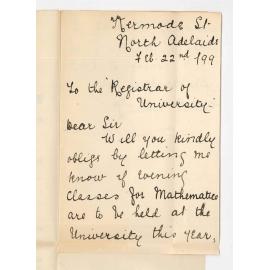 Kermode St
North Adelaide
Feb. 22nd /99
To the Registrar of
University.
Dear Sir
Will you kindly
oblige by letting me
know if Evening
Classes for Mathematics
are to be held at the
University this year,